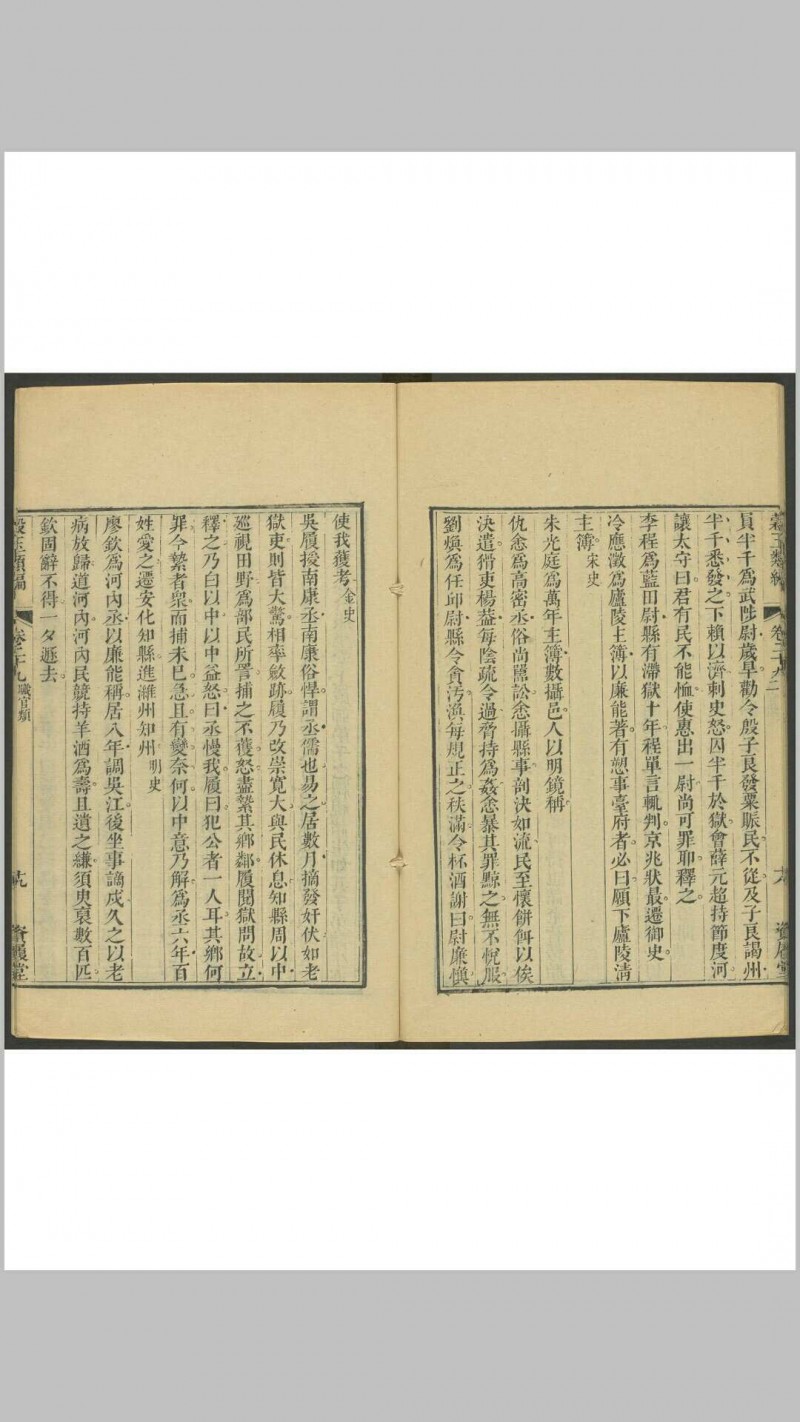 員半千為武陟尉歲旱勸令殷子良發粟賑民不從及子良謁州
半千悉發之下賴以濟刺史怒囚半千於獄會薛元超持節度河
讓太守曰君有民不能恤使惠出一尉尚可罪耶釋之
李程為藍田尉縣有滯獄十年程單言輒判京兆狀最遷御史
冷應澂為廬陵主簿以廉能著有愬事臺府者必曰願下廬陵清
主簿宋史
朱光庭為萬年主簿數攝邑人以明鏡稱
仇悆為高密丞俗尚嚚訟悆攝縣事剖決如流民至懷餅餌以俟
決遣猾吏楊蓋每陰疏令過脅持為姦悆暴其罪黥之無不悅服
劉煥為任邱尉縣令貪污渙每規正之秩滿令杯酒謝曰尉廉慎
使我獲考金史
吳履授南康丞南康俗悍謂丞儒也易之居數月摘發奸伏如老
獄吏則皆大驚相率斂跡履乃改崇寬大與民休息知縣周以中
廵視田野為部民所詈捕之不獲怒盡縶其鄉鄰履閱獄問故立
釋之乃白以中以中益怒曰丞慢我履曰犯公者一人耳其鄉何
罪今縶者衆而捕未已急且有變奈何以中意乃解為丞六年百
姓愛之遷安化知縣進濰州知州明史
廖欽為河內丞以廉能稱居八年調吳江後坐事謫戍久之以老
病放歸道河內河內民競持羊酒為壽且遺之縑須臾裒數百匹
欽固辭不得一夕遯去
類編 職官類